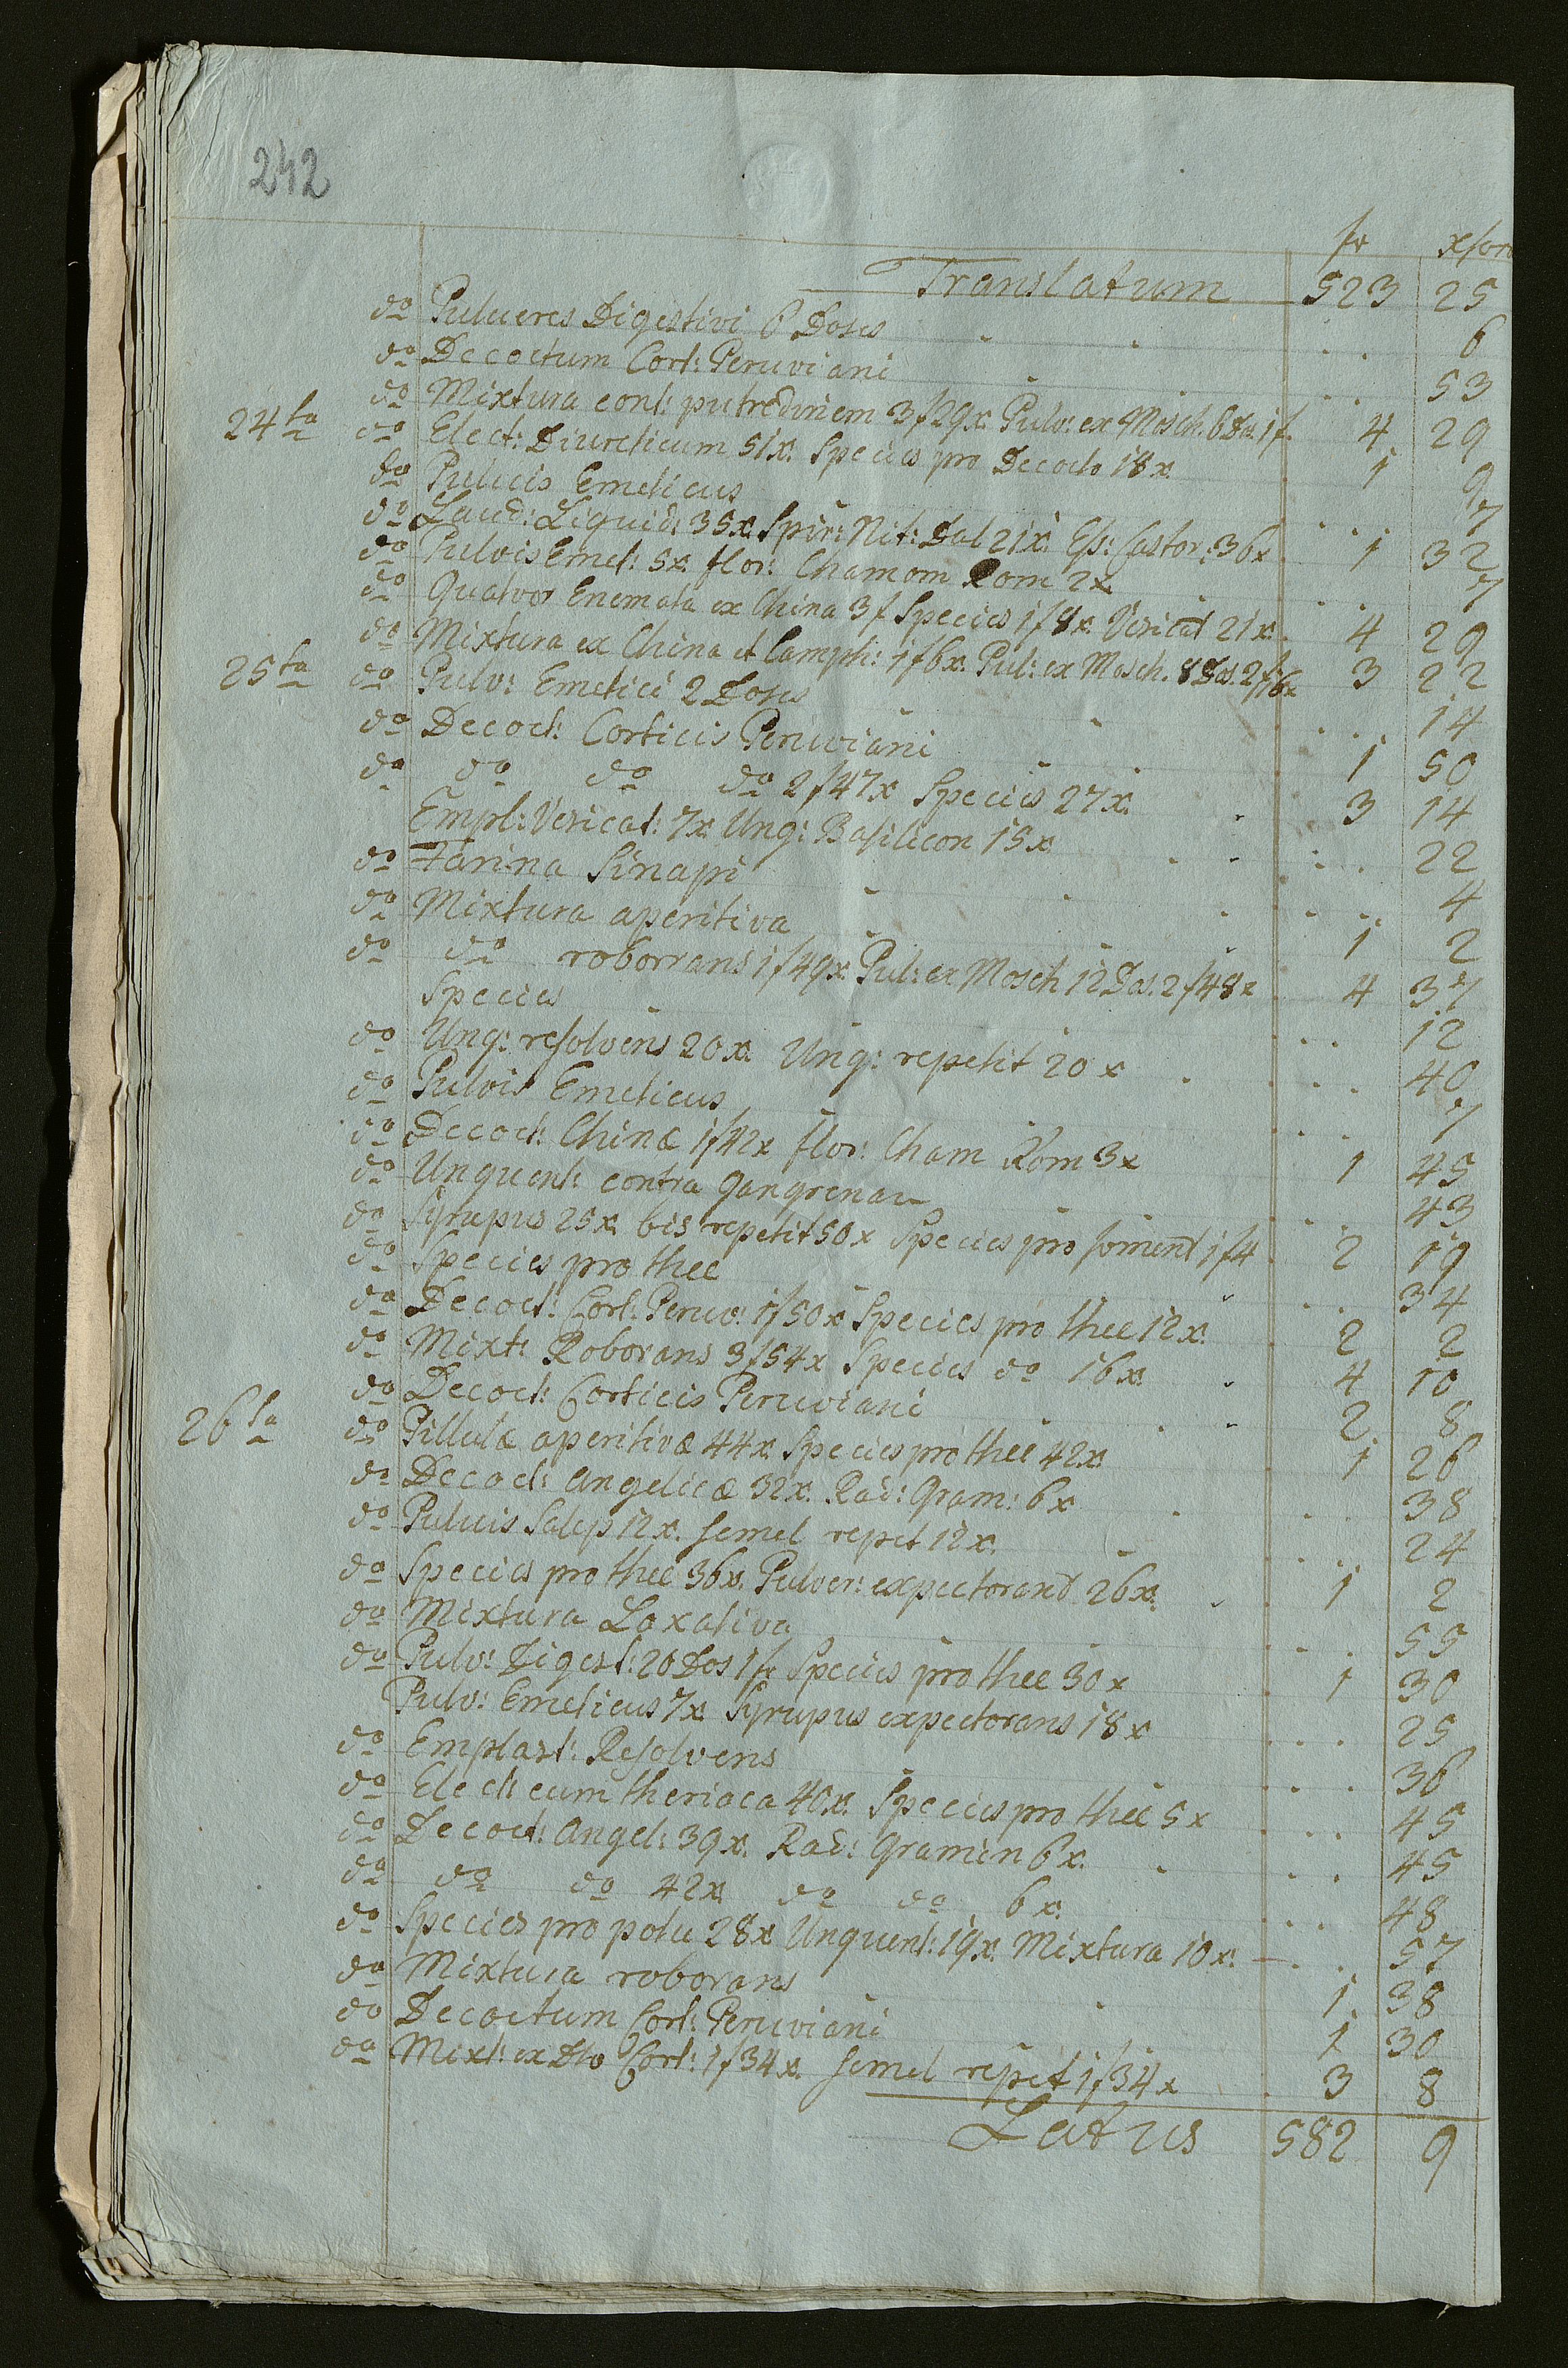 242
fr xfori
Translatum 523 25
do Pulueres Digestivi 6 Doses 6
do Decoctum Cort: Peruviani 53
do Mixtura cont: putredinem 3f29x. Pulv: ex Mosch. 6 Dos. 1f. 4 29
24ta do Elect: Diureticum 51x. Species pro Decocto 18x. 1 9
do Puluis Emeticus 7
do Laud: Liquid: 35x. Spir: Nit: Dul 21x. Eſs: Castor: 36x 1 32
do Pulvis Emet: 5x. flor: Chamom Rom 2x 7
do Quatvor Enemata ex China 3f Species 1f8x. Vesicat 21x. 4 29
do Mixtura ex China et Camph: 1f6x. Pul: ex Mosch. 8 Dos. 2f16x 3 22
25ta do Pulv: Emetici 2 Doses 14
do Decoct: Corticis Peruviani 1 50
do do do do 2f47x Species 27x. 3 14
Empl: Vesicat: 7x. Ung: Baſilicon 15x 22
do Farina Sinapi 4
do Mixtura aperitiva 1 2
do do roborrans 1f49x. Pul: ex Mosch 12 Dos. 2f48x 4 37
Species 12
do Ung: reſolvens 20x. Ung: repetit 20x 40
do Pulvis Emeticus 7
do Decoct: Chinæ 1f42x flor: Cham Rom 3x 1 45
do Unguent: contra Gangrenam 43
do Syrupus 25x. bis repetit 50x Species pro foment 1f4 2 19
do Species pro thee 34
do Decoct: Cort: Peruv: 1f50x Species pro thee 12x. 2 2
do Mixt: Roborans 3f54x Species do 16x. 4 10
do Decoct: Corticis Peruviani 2 8
26ta do Pillulæ aperitivæ 44x. Species pro thee 42x. 1 26
do Decoct: Angelicæ 32x. Rad: Gram: 6x 38
do Puluis Salep 12x. semel repet 12x. 24
do Species pro thee 36x. Pulver: expectorand 26x. 1 2
do Mixtura Laxativa 55
do Pulv: Digest: 20 Dos 1fr Species pro thee 30x 1 30
Pulv: Emeticus 7x. Syrupus expectorans 18x 25
do Emplast: Reſolvens 36
do Elect: cum theriaca 40x. Species pro thee 5x 45
do Decoct: Angel: 39x. Rad: Gramin 6x. 45
do do do 42x. do do 6x. 48
do Species pro potu 28x. Unguent: 19x. Mixtura 10x. 57
do Mixtura roborans 1 38
do Decoctum Cort: Peruviani 1 30
do Mixt: ex Dto Cort: 1f34x. semel repet 1f34x 3 8
Latus 582 9